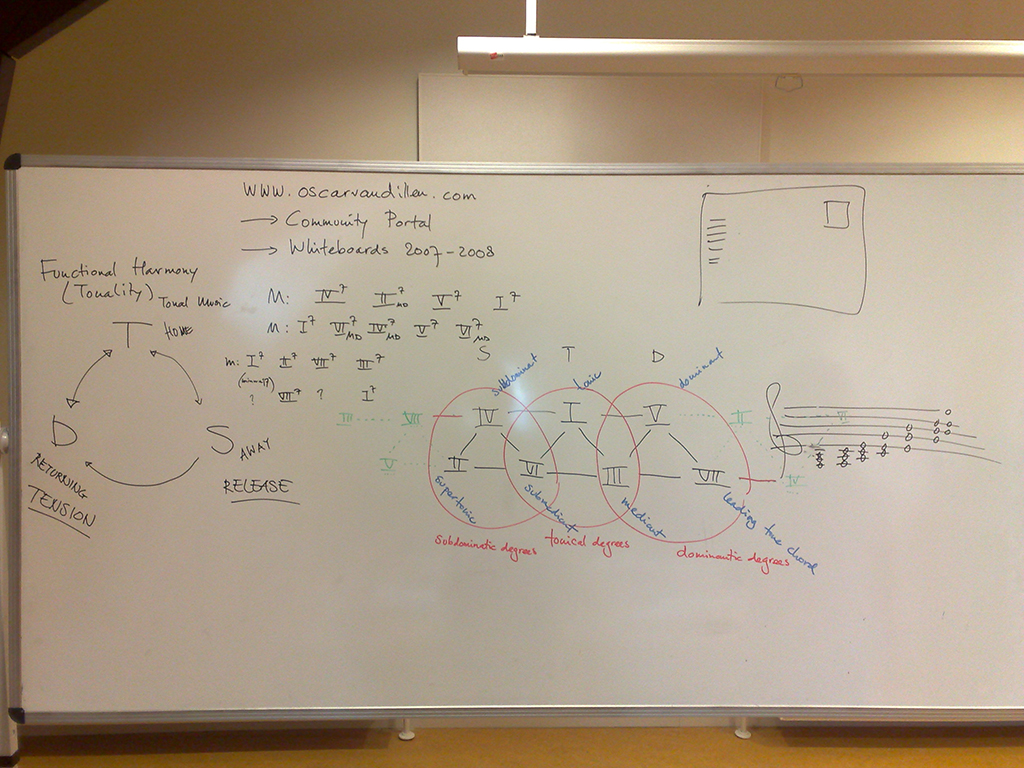 www.oscarvandillen.com
→ Community Portal
→ Whiteboards 2007-2008
Functional Harmony
(Tonality) Tonal Music
T HOME
D
RETURNING
TENSION
S AWAY
RELEASE
M: IV7 II7MD V7 I7
M: I7 VI7MD IV7MD V7 VI7MD
m: I7 II7 VII7 III7
? VII7 ? I7
S T D
subdominant tonic dominant
III VII IV I V II VI
V II VI III VII IV
supertonic submediant mediant leading tone chord
subdominantic degrees tonical degrees dominantic degrees